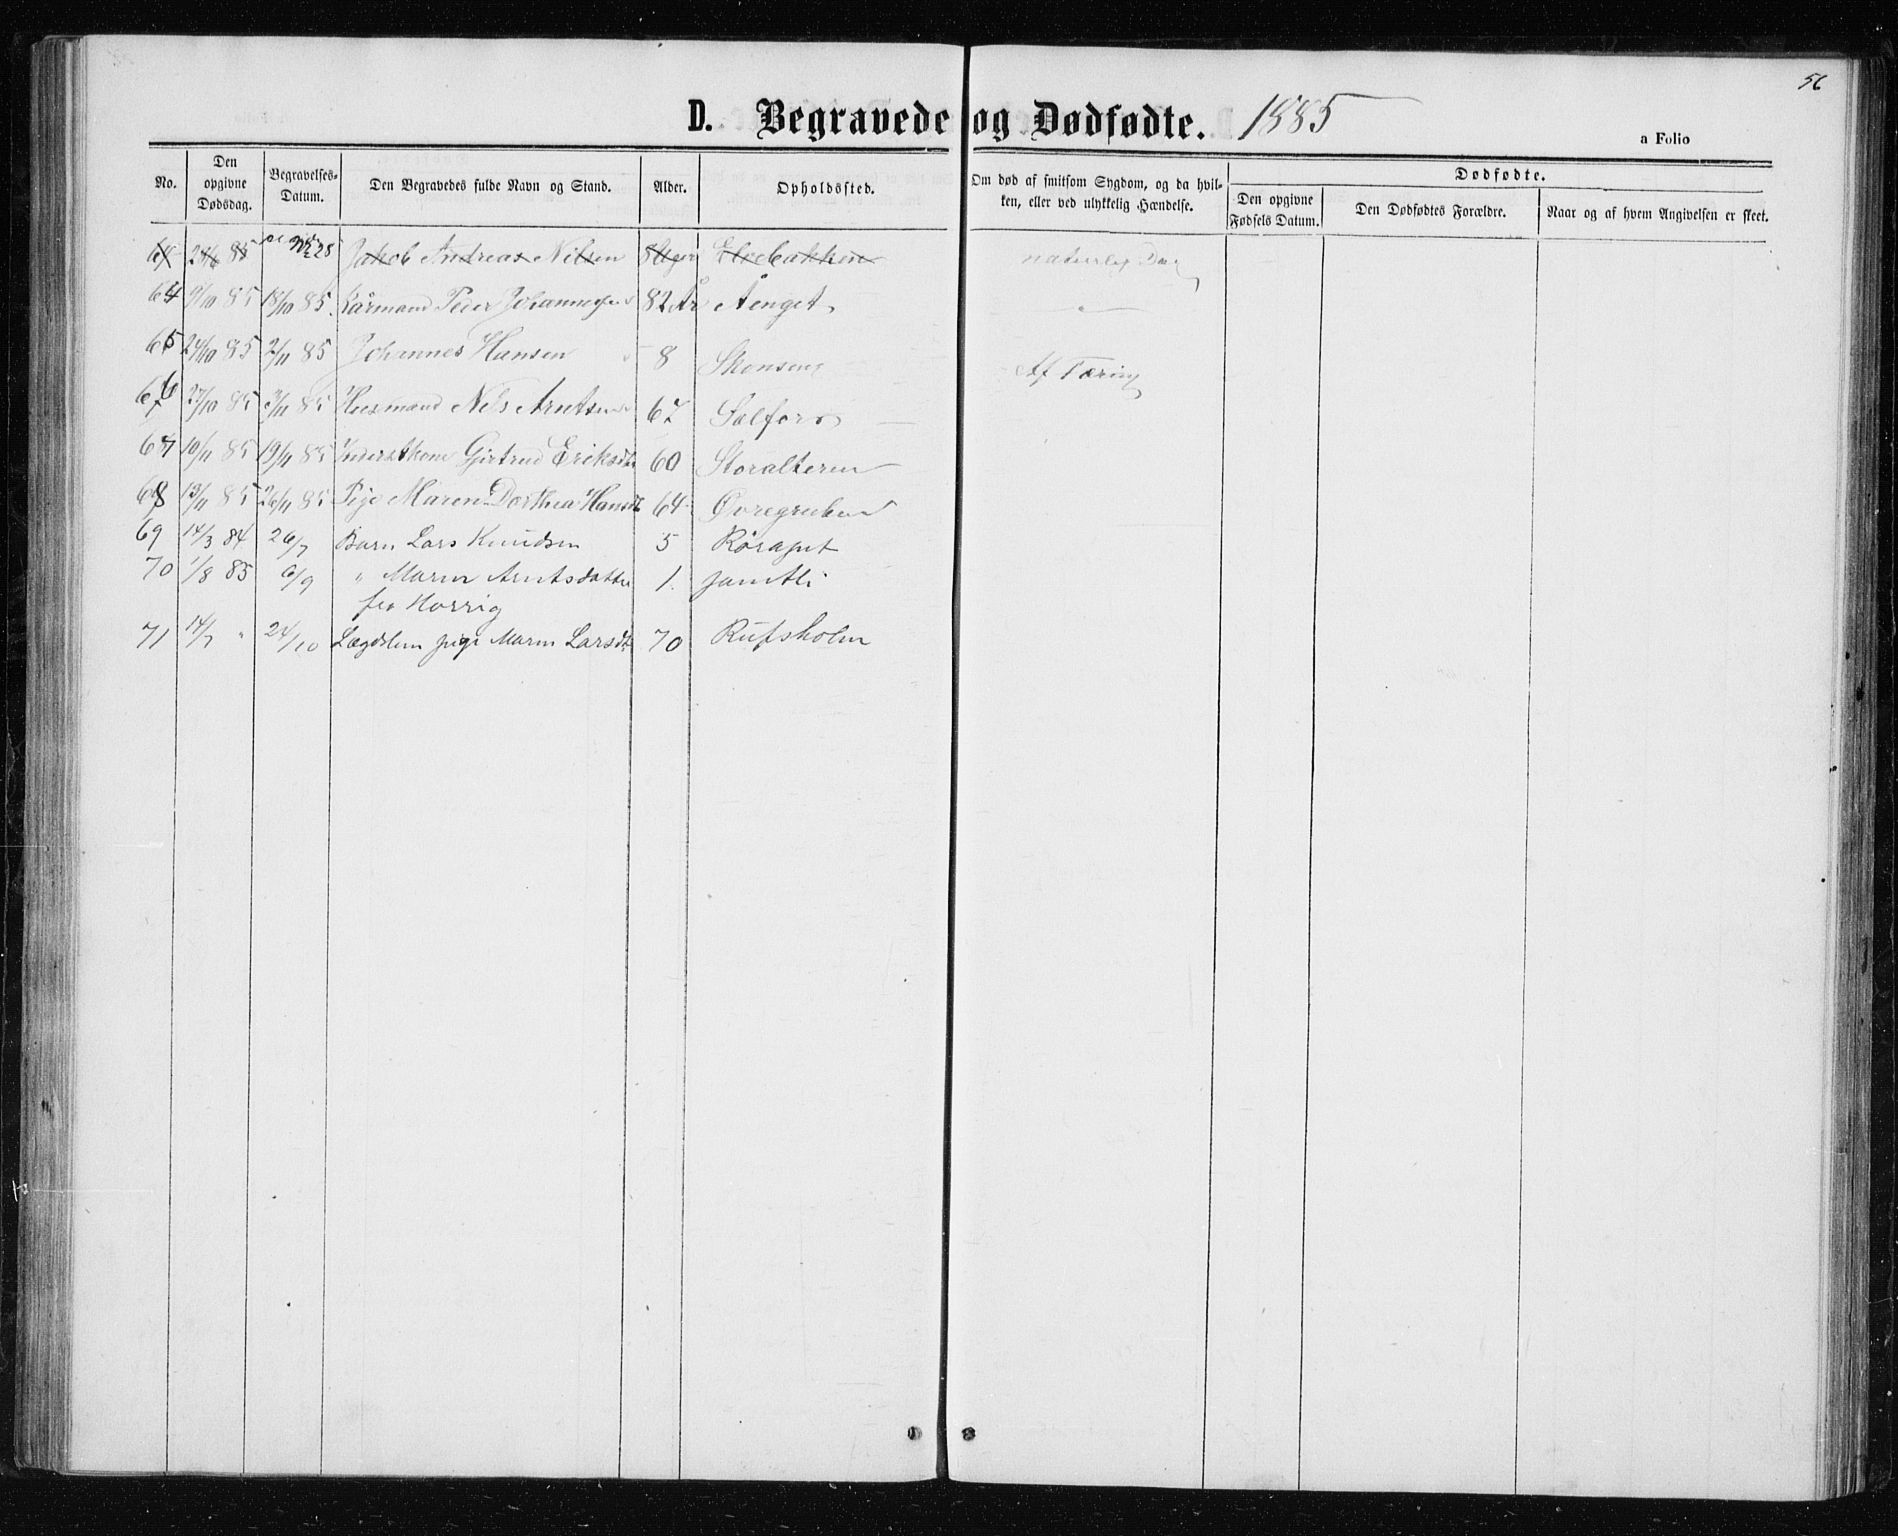 56
D. Begravede og Dødfødte. 1885
a Folio
No. Den opgivne Dødsdag. Begravelses-Datum. Den Begravedes fulde Navn og Stand. Alder. Opholdssted. Om død af smitsom Sygdom, og da hvilken, eller ved ulykkelig Hændelse. Dødfødte. Den opgivne Fødsels Datum. Den Dødfødtes Forældre. Naar og af hvem Angivelsen er skeet.
85 28 Jakob Andreas Nilsen Elvebakken
64 9/10 85 18/10 85 Kårmand Peder Johannesen 82 År Åenget
65 24/10 85 2/11 85 Johannes Hansen 8 Skonseng Af Tæring
66 27/10 85 3/11 85 Huusmand Nils Arntsen 67 Salfors
67 10/11 85 19/11 85 Inderstkone Gjertrud Eriksdtr 60 Storalteren
68 13/11 85 26/11 85 Pige Maren Dorthea Hansdt 64 Øvregruben
69 14/3 84 26/7 Barn Lars Knudsen 5
70 1/8 85 6/9 " Maren Arntsdatter 1. Jamtli
fra
71 14/7 " 24/10 Lægdslem pige Maren Larsdt 70 Rufsholm